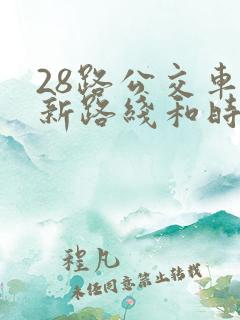 28路公交车
新路线和时
程凡
未经同意禁止转载